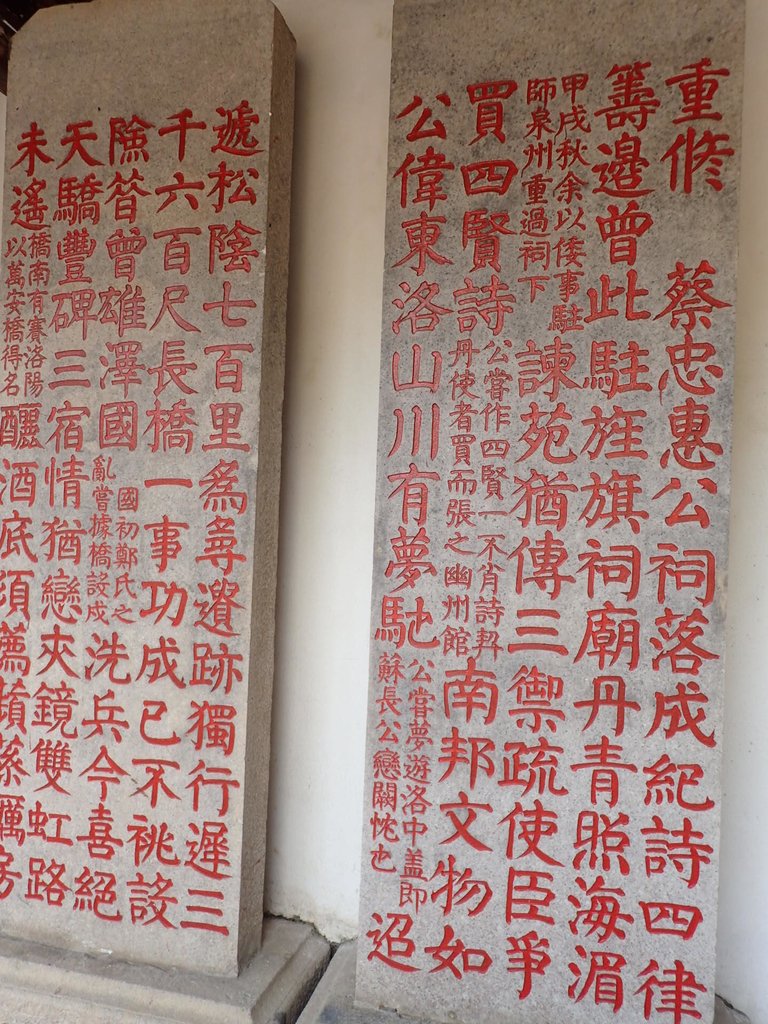 重修 蔡忠惠公祠落成紀詩四律
籌邊曾此駐旌旗祠廟丹青照海湄
甲戌秋余以倭事駐
師泉州重過祠下
諫苑猶傳三御疏使臣爭
買四賢詩
公嘗作四賢一不肖詩契
丹使者買而張之幽州館
南邦文物如
公偉東洛山川有夢馳
公嘗夢遊洛中蓋即
蘇長公戀闕忱也
迢
遞松陰七百里為尋遺跡獨行遲三
千六百尺長橋一事功成已不祧設
險昔曾雄澤國
國初鄭氏之
亂嘗據橋設戍
洗兵今喜絕
天驕豐碑三宿情猶戀夾鏡雙虹路
未遙
橋南有賽洛陽
以萬安橋得名
釃酒底須薦蠣房